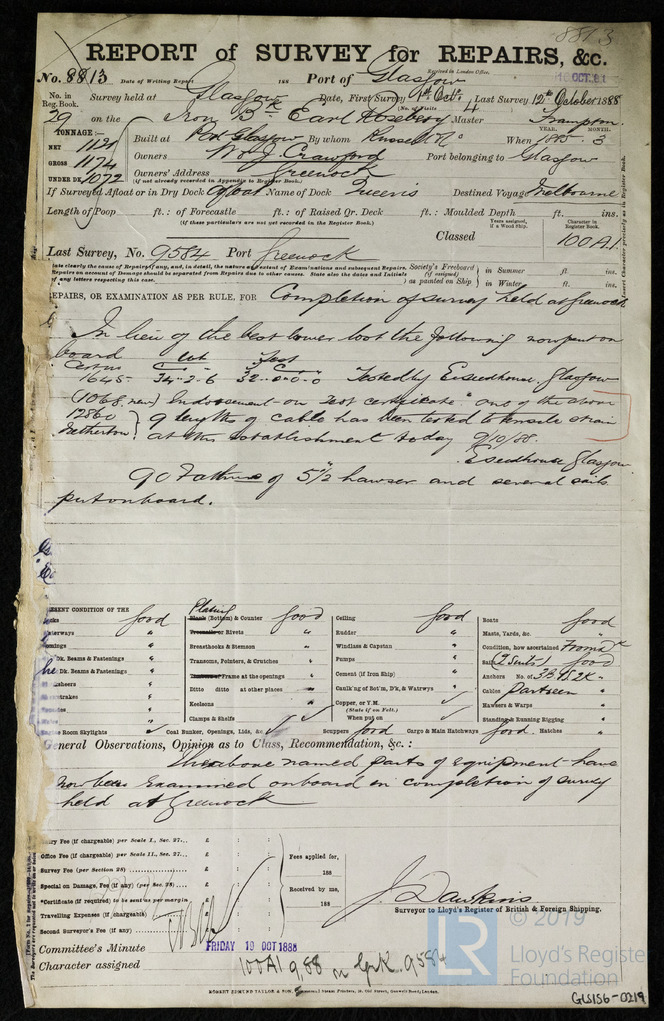 8813
REPORT of SURVEY for REPAIRS, &c.
No. 8813 Date of Writing Report 188 Port of Glasgow Received in London Office.
No. in Reg. Book. Survey held at Glasgow Date, First Survey 9th Octr. Last Survey 12th October 1888
(No. of Visits 4
29 on the Iron Bk Earl Rosebery Master Frampton
TONNAGE:— YEAR. MONTH.
NET 1121 Built at Port Glasgow By whom Russell & Co When 1885 - 3
GROSS 1174 Owners Wm J. Crawford Port belonging to Glasgow
UNDER DK 1072 Owners' Address Greenock
(if not already recorded in Appendix to Register Book.)
If Surveyed Afloat or in Dry Dock afloat Name of Dock Queens Destined Voyage Melbourne
Length of Poop ft.: of Forecastle ft.: of Raised Qr. Deck ft.: Moulded Depth ft. ins.
(if these particulars are not yet recorded in the Register Book.)
Years assigned, if a Wood Ship. Character in Register Book.
Classed 100A1.
Last Survey, No. 9584 Port Greenock
Insert Character precisely as in Register Book.
late clearly the cause of Repairs, if any, and, in detail, the nature and extent of Examinations and subsequent Repairs.
Repairs on account of Damage should be separated from Repairs due to other causes. State also the dates and Initials
of any letters respecting this case.
Society's Freeboard (if assigned) as painted on Ship
in Summer ft. ins.
in Winter ft. ins.
EPAIRS, OR EXAMINATION AS PER RULE, FOR Completion of survey held at Greenock
In lieu of the best bower lost the following now put on
board Wt Test
1645 - 34-2-6 32-0-0-0 Tested by Glasgow
(1068. new) Endorsement on test certificate "one of the above
12860 9 lengths of cable has been tested to tensile strain
Netherton at this establishment today 9/10/88.
Glasgow.
90 Fathoms of 5½" hawser and several sails
put on board.
ESENT CONDITION OF THE
Decks good
aterways "
omings "
Dk. Beams & Fastenings "
Dk. Beams & Fastenings "
sheers "
trakes "
Engine Room Skylights
Plating
Plank (Bottom) & Counter good
Treenails or Rivets "
Breasthooks & Stemson "
Transoms, Pointers, & Crutches "
Timbers or Frame at the openings "
Ditto ditto at other places "
Keelsons "
Clamps & Shelfs
Coal Bunker, Openings, Lids, &c.
Ceiling good
Rudder "
Windlass & Capstan "
Pumps "
Cement (if Iron Ship) "
Caulk'ng of Bot'm, D'k, & Waterwys
Copper, or Y.M.
(State if on Felt.)
When put on
Scuppers good Cargo & Main Hatchways good Hatches "
Boats good
Masts, Yards, &c. "
Condition, how ascertained From deck
Sails (2 Suits) good
Anchors No. of 3B 1S 2K "
Cables Part seen "
Hawsers & Warps "
Standing & Running Rigging "
General Observations, Opinion as to Class, Recommendation, &c. :
The above named parts of equipment have
now been examined onboard in completion of survey
held at Greenock
ntry Fee (if chargeable) per Scale I., Sec. 27... £ : :
Office Fee (if chargeable) per Scale II., Sec. 27... £ : :
Survey Fee (per Section 28) £ : :
Special on Damage, Fee (if any) (per Sec. 28) £ : :
*Certificate (if required) to be sent as per margin £ : :
Travelling Expenses (if chargeable) £ : :
Second Surveyor's Fee (if any) £ : :
Fees applied for,
188
Received by me,
188
J. Dawkins
Surveyor to Lloyd's Register of British & Foreign Shipping.
Committee's Minute FRIDAY 19 OCT 1888
Character assigned 100A1 9,88 n Grk. 9584
ROBERT EDMUND TAYLOR & SON, Steam Printers, 19, Old Street, Goswell Road, London.
© 2019
LR Lloyd's Register
Foundation
GLS156-0219